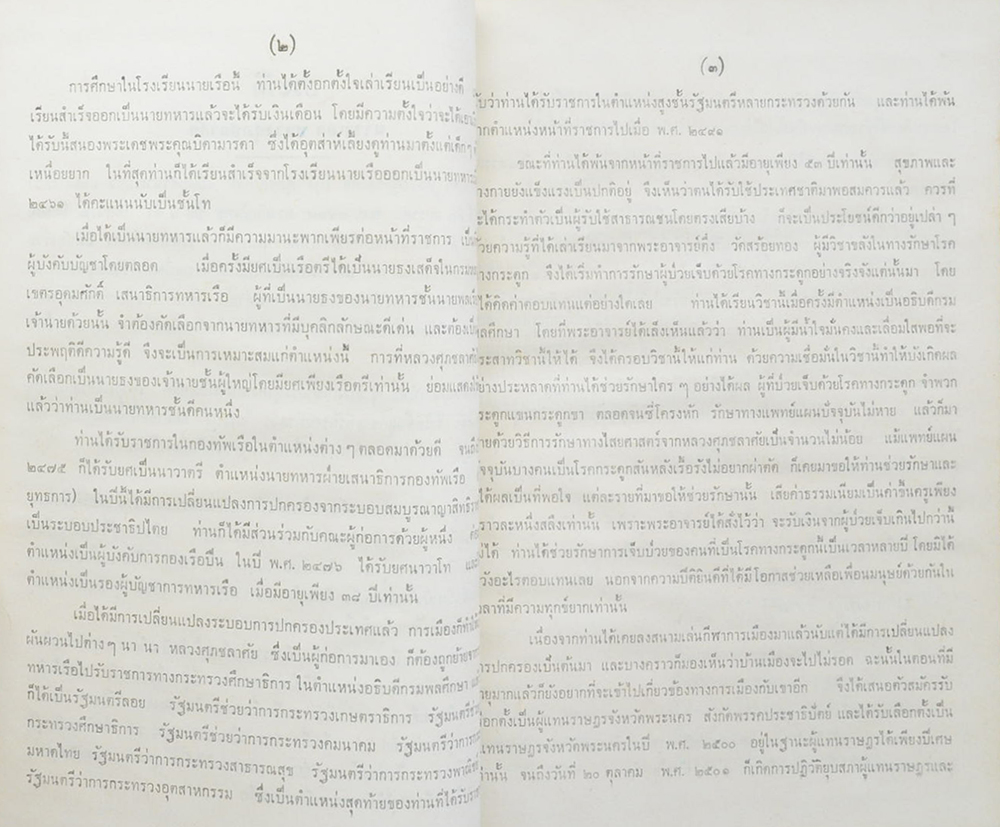 (๒)
การศึกษาในโรงเรียนนายเรือนี้ ท่านได้ตั้งอกตั้งใจเล่าเรียนเป็นอย่างดี
เรียนสำเร็จออกเป็นนายทหารแล้วจะได้รับเงินเดือน โดยมีความตั้งใจว่าจะได้
ได้รับนี้สนองพระเดชพระคุณบิดามารดา ซึ่งได้อุตส่าห์เลี้ยงดูท่านมาตั้งแต่เด็กๆ
เหนื่อยยาก ในที่สุดท่านก็ได้เรียนสำเร็จจากโรงเรียนนายเรือออกเป็นนายทหาร
๒๔๖๑ ได้คะแนนนับเป็นชั้นโท
เมื่อได้เป็นนายทหารแล้วก็มีความมานะพากเพียรต่อหน้าที่ราชการ
ผู้บังคับบัญชาโดยตลอด เมื่อครั้งมียศเป็นเรือตรีได้เป็นนายธงเสด็จใน
เขตรอุดมศักดิ์ เสนาธิการทหารเรือ ผู้ที่เป็นนายธงของนายทหารชั้นนายพล
เจ้านายด้วยนั้น จำต้องคัดเลือกจากนายทหารที่มีบุคลิกลักษณะดีเด่น และต้อง
ประพฤติดีความรู้ดี จึงจะเป็นการเหมาะสมแก่ตำแหน่งนี้ การที่หลวงศุภชลาศัย
คัดเลือกเป็นนายธงของเจ้านายชั้นผู้ใหญ่โดยมียศเพียงเรือตรีเท่านั้น ย่อมแสดง
แล้วว่าท่านเป็นนายทหารชั้นดีคนหนึ่ง
ท่านได้รับราชการในกองทัพเรือในตำแหน่งต่างๆ ตลอดมาด้วยดี
๒๔๗๕ ก็ได้รับยศเป็นนาวาตรี ตำแหน่งนายทหารฝ่ายเสนาธิการกองทัพเรือ
ยุทธการ) ในปีนี้ได้มีการเปลี่ยนแปลงการปกครองจากระบอบสมบูรณาญาสิทธิ
เป็นระบอบประชาธิปไตย ท่านก็ได้มีส่วนร่วมกับคณะผู้ก่อการด้วยผู้หนึ่ง
ตำแหน่งเป็นผู้บังคับการกองเรือปืน ในปี พ.ศ. ๒๔๗๖ ได้รับยศนาวาโท
ตำแหน่งเป็นรองผู้บัญชาการทหารเรือ เมื่อมีอายุเพียง ๓๘ ปีเท่านั้น
เมื่อได้มีการเปลี่ยนแปลงระบอบการปกครองประเทศแล้ว การเมืองก็
ผันผวนไปต่างๆ นา นา หลวงศุภชลาศัย ซึ่งเป็นผู้ก่อการมาเอง ก็ต้องถูกย้าย
ทหารเรือไปรับราชการทางกระทรวงศึกษาธิการ ในตำแหน่งอธิบดีกรมพลศึกษา
ก็ได้เป็นรัฐมนตรีลอย รัฐมนตรีช่วยว่าการกระทรวงเกษตราธิการ
กระทรวงศึกษาธิการ รัฐมนตรีช่วยว่าการกระทรวงคมนาคม รัฐมนตรีว่าการ
มหาดไทย รัฐมนตรีว่าการกระทรวงสาธารณสุข รัฐมนตรีว่าการกระทรวงพาณิชย์
รัฐมนตรีว่าการกระทรวงอุตสาหกรรม ซึ่งเป็นตำแหน่งสุดท้ายของท่านที่ได้รับ
(๓)
ว่าท่านได้รับราชการในตำแหน่งสูงชั้นรัฐมนตรีหลายกระทรวงด้วยกัน และท่านได้พ้น
จากตำแหน่งหน้าที่ราชการไปเมื่อ พ.ศ. ๒๔๙๑
ขณะที่ท่านได้พ้นจากหน้าที่ราชการไปแล้วมีอายุเพียง ๕๓ ปีเท่านั้น สุขภาพและ
ร่างกายยังแข็งแรงเป็นปกติอยู่ จึงเห็นว่าตนได้รับใช้ประเทศชาติมาพอสมควรแล้ว ควรที่
จะได้กระทำตัวเป็นผู้รับใช้สาธารณชนโดยตรงเสียบ้าง ก็จะเป็นประโยชน์ดีกว่าอยู่เปล่า ๆ
ด้วยความรู้ที่ได้เล่าเรียนมาจากพระอาจารย์ดึ่ง วัดสร้อยทอง ผู้มีวิชาขลังในทางรักษาโรค
ทางกระดูก จึงได้เริ่มทำการรักษาผู้ป่วยเจ็บด้วยโรคทางกระดูกอย่างจริงจังแต่นั้นมา โดย
ได้คิดค่าตอบแทนแต่อย่างใดเลย ท่านได้เรียนวิชานี้เมื่อครั้งมีตำแหน่งเป็นอธิบดีกรม
พลศึกษา โดยที่พระอาจารย์ได้เล็งเห็นแล้วว่า ท่านเป็นผู้มีน้ำใจมั่นคงและเลื่อมใสพอที่จะ
ประสาทวิชานี้ให้ได้ จึงได้ครอบวิชานี้ให้แก่ท่าน ด้วยความเชื่อมั่นในวิชานี้ทำให้บังเกิดผล
อย่างประหลาดที่ท่านได้ช่วยรักษาใคร ๆ อย่างได้ผล ผู้ที่ป่วยเจ็บด้วยโรคทางกระดูก จำพวก
กระดูกแขนกระดูกขา ตลอดจนซี่โครงหัก รักษาทางแพทย์แผนปัจจุบันไม่หาย แล้วก็มา
หายด้วยวิธีการรักษาทางไสยศาสตร์จากหลวงศุภชลาศัยเป็นจำนวนไม่น้อย แม้แพทย์แผน
ปัจจุบันบางคนเป็นโรคกระดูกสันหลังเรื้อรังไม่อยากผ่าตัด ก็เคยมาขอให้ท่านช่วยรักษาและ
ได้ผลเป็นที่พอใจ แต่ละรายที่มาขอให้ช่วยรักษานั้น เสียค่าธรรมเนียมเป็นค่าขึ้นครูเพียง
คราวละหนึ่งสลึงเท่านั้น เพราะพระอาจารย์ได้สั่งไว้ว่า จะรับเงินจากผู้ป่วยเจ็บเกินไปกว่านี้
ไม่ได้ ท่านได้ช่วยรักษาการเจ็บป่วยของคนที่เป็นโรคทางกระดูกนี้เป็นเวลาหลายปี โดยมิได้
หวังอะไรตอบแทนเลย นอกจากความปีติยินดีที่ได้มีโอกาสช่วยเหลือเพื่อนมนุษย์ด้วยกันใน
เวลาที่มีความทุกข์ยากเท่านั้น
เนื่องจากท่านได้เคยลงสนามเล่นกีฬาการเมืองมาแล้วนับแต่ได้มีการเปลี่ยนแปลง
การปกครองเป็นต้นมา และบางคราวก็มองเห็นว่าบ้านเมืองจะไปไม่รอด ฉะนั้นในตอนที่มี
อายุมากแล้วก็ยังอยากที่จะเข้าไปเกี่ยวข้องทางการเมืองกับเขาอีก จึงได้เสนอตัวสมัครรับ
เลือกตั้งเป็นผู้แทนราษฎรจังหวัดพระนคร สังกัดพรรคประชาธิปัตย์ และได้รับเลือกตั้งเป็น
ผู้แทนราษฎรจังหวัดพระนครในปี พ.ศ. ๒๕๐๐ อยู่ในฐานะผู้แทนราษฎรได้เพียงปีเศษ
เท่านั้น จนถึงวันที่ ๒๐ ตุลาคม พ.ศ. ๒๕๐๑ ก็เกิดการปฏิวัติยุบสภาผู้แทนราษฎรและ